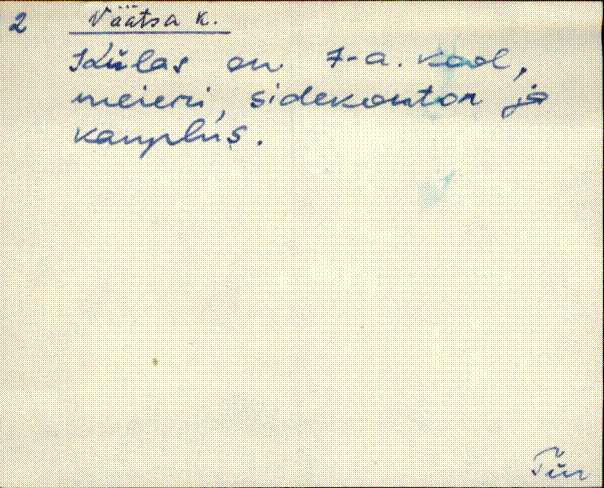 2 Väätsa k.
Külas on 7-a. kool,
meierei, sidekontor ja
kauplus.
Tür